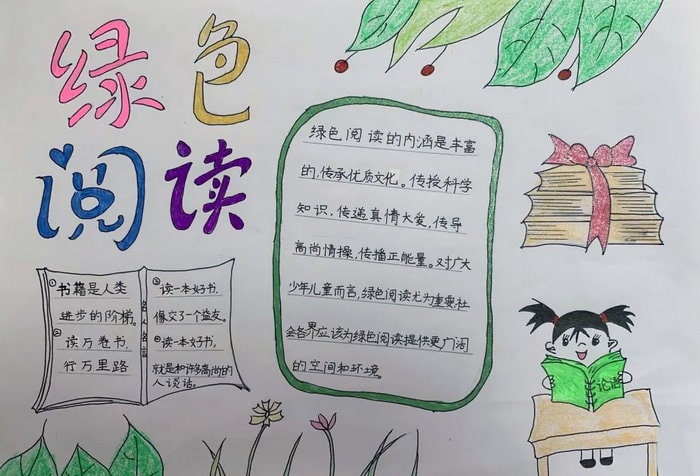 绿色
阅读
绿色阅读的内涵是丰富
的,传承优质文化。传授科学
知识,传递真情大爱,传导
高尚情操,传播正能量。对广大
少年儿童而言,绿色阅读尤为重要,社
会各界应该为绿色阅读提供更广阔
的空间和环境。
①书籍是人类
进步的阶梯。
②读万卷书,
行万里路
名人名言
③读一本好书,
像交了一个益友。
④读一本好书,
就是和许多高尚的
人谈话。